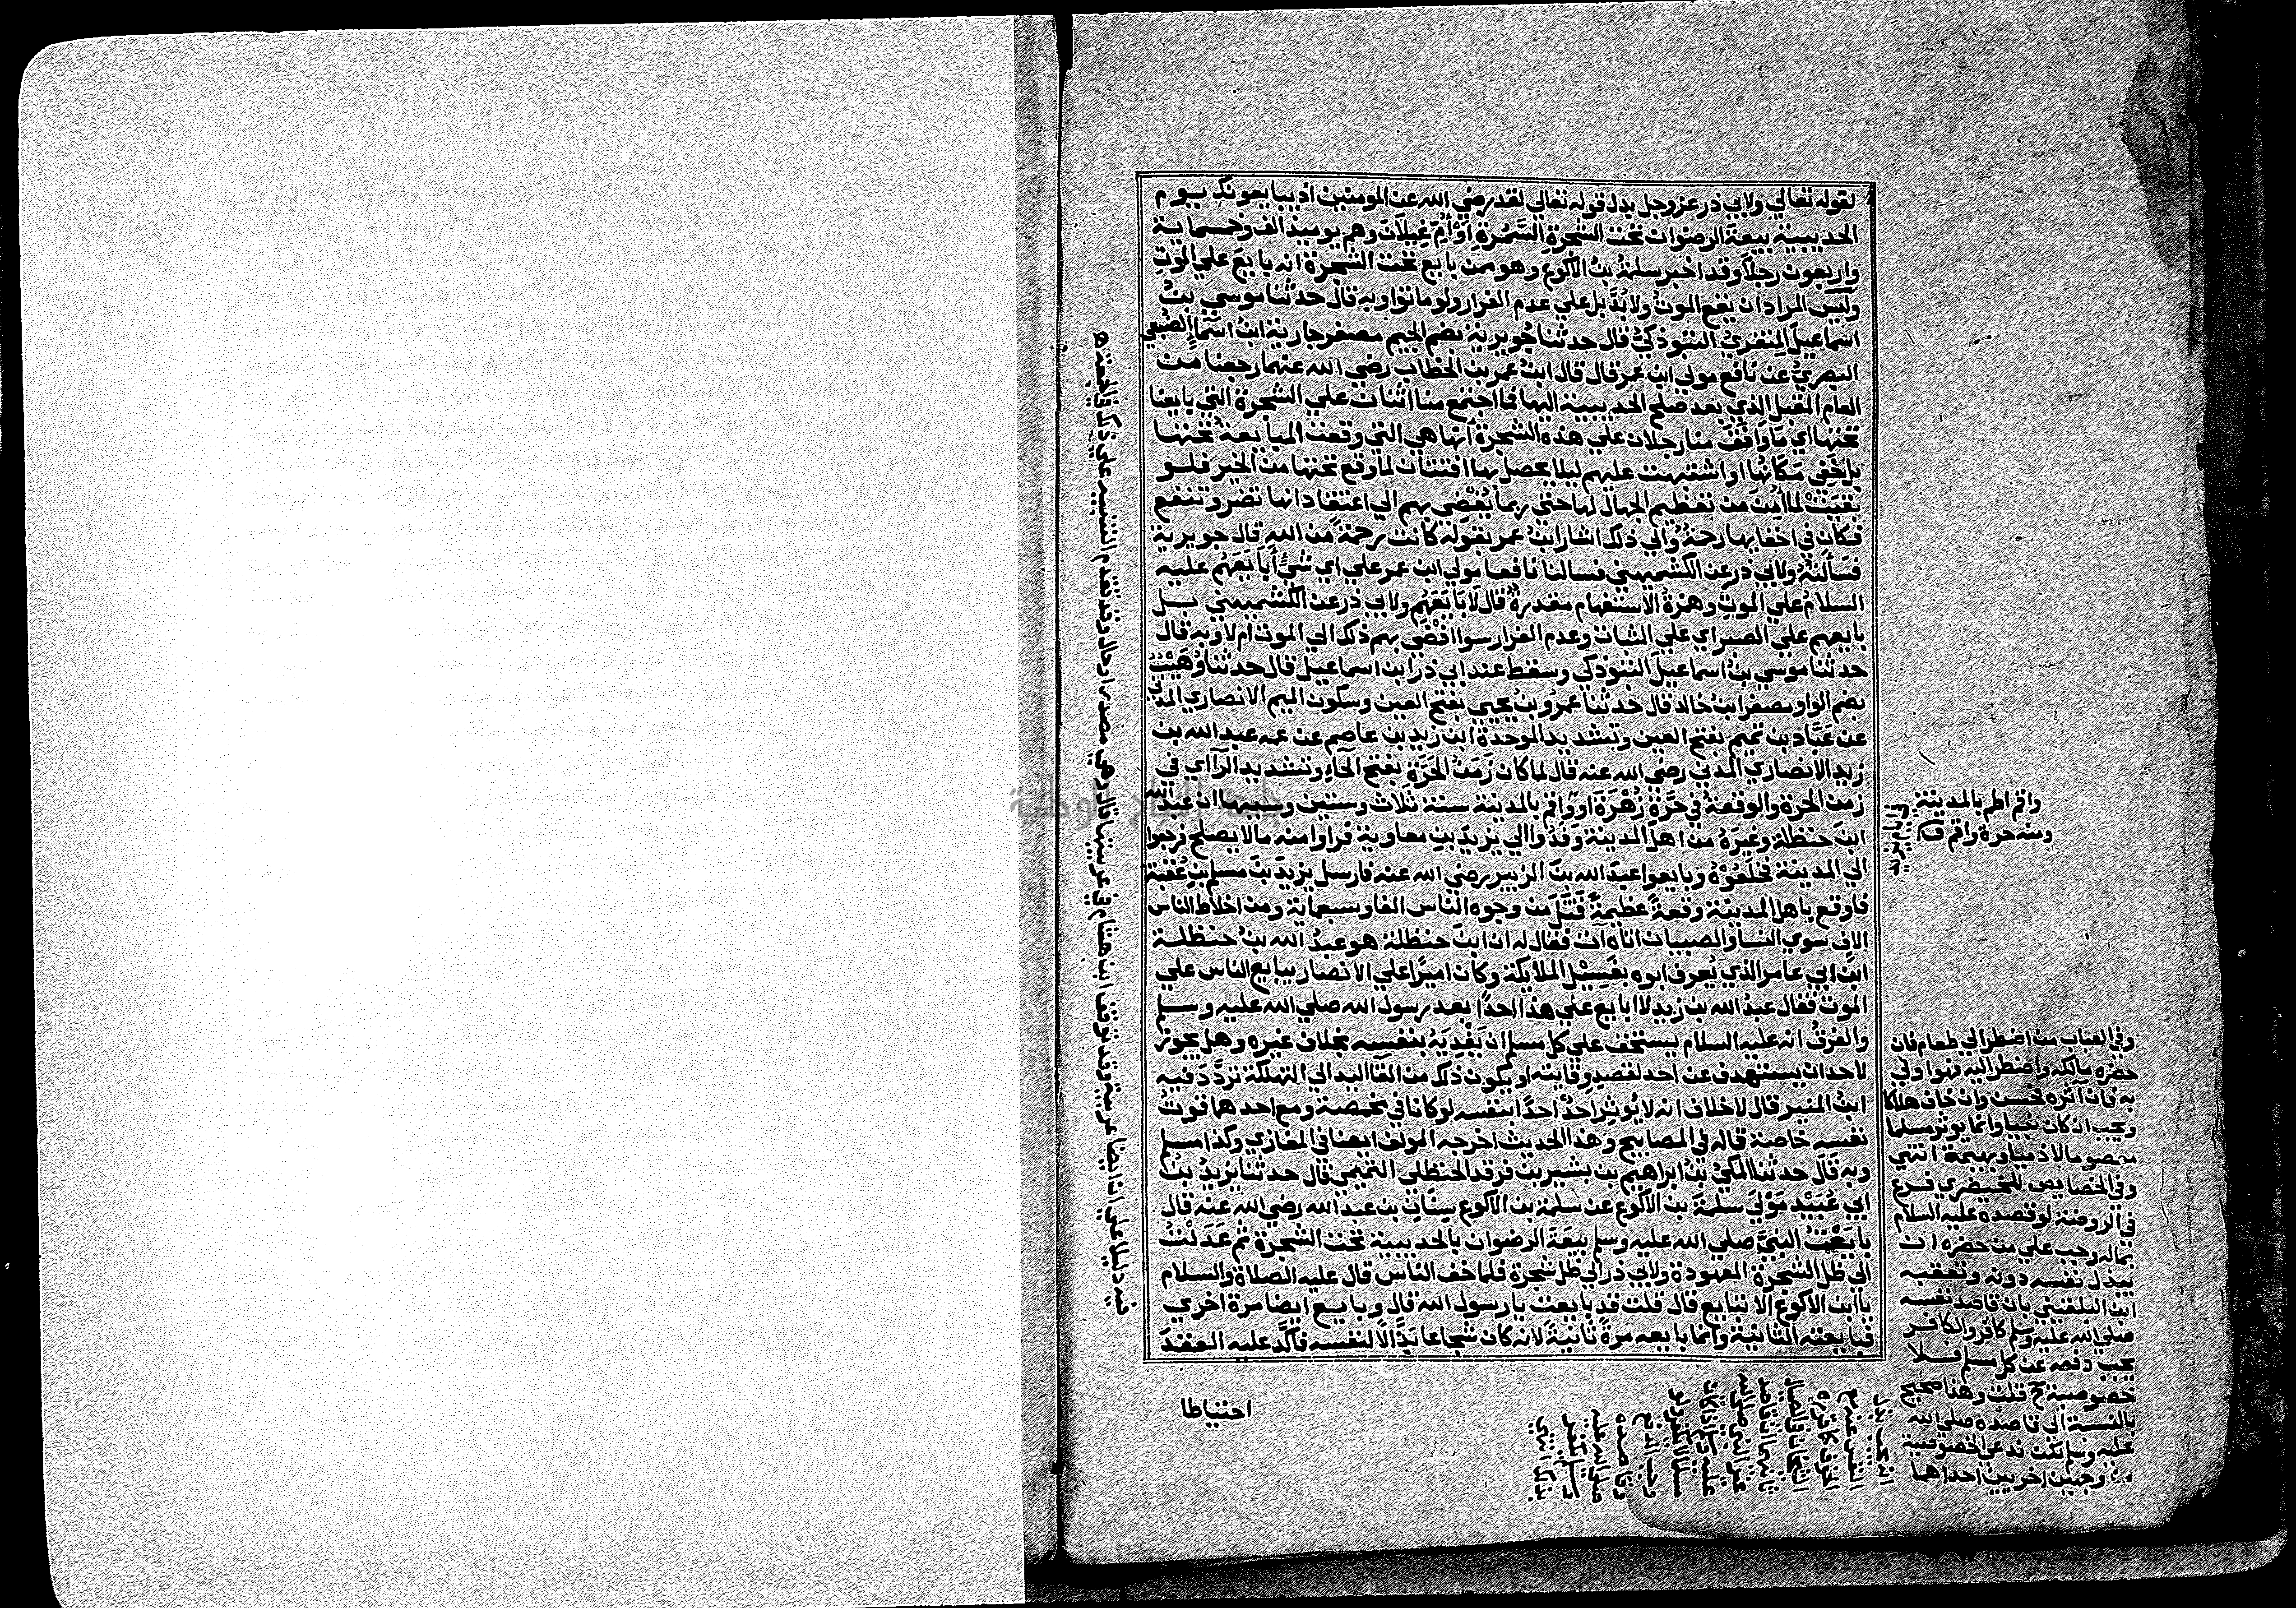 لقوله تعالي ولابي ذر عز وجل بدل قوله تعالي لقد رضي الله عن المومنين اذ يبايعونك يوم
الحديبية بيعة الرضوان تحت الشجرة السَّمُرة او أُمّ غيلان وهم يوميذ الف وخمسماية
واربعون رجلا وقد اخبر سلمة بن الاكوع وهو ممن بايع تحت الشجرة انه بايع علي الموت
وليس المراد ان يقع الموت ولا بد بل علي عدم الفرار ولو ماتوا وبه قال حدثنا موسي بن
اسماعيل المنقري التبوذكي قال حدثنا جويرية بضم الجيم مصغر جارية ابن اسماء الضبعي
البصري عن نافع مولي ابن عمر قال قال ابن عمر بن الخطاب رضي الله عنهما رجعنا من
العام المقبل الذي بعد صلح الحديبية اليها فما اجتمع منا اثنان علي الشجرة التي بايعنا
تحتها اي ما وافق منا رجلان علي هذه الشجرة انها هي التي وقعت المبايعة تحتها
بل خفي مكانها او اشتبهت عليهم ليلا يحصل بها افتتان لما وقع تحتها من الخير فلو
بقيت لما أُمِنَ من تعظيم الجهال لها حتي ربما يفضي بهم الي اعتقاد انها تضر وتنفع
فكان في اخفايها رحمة والي ذلك اشار ابن عمر بقوله كانت رحمة من الله قال جويرية
فسألت ولابي ذر عن الكشميهني فسالنا نافعا مولي ابن عمر علي اي شيء أبايعهم عليه
السلام علي الموت وهمزة الاستفهام مقدرة قال لا بايعهم ولابي ذر عن الكشميهني بل
بايعهم علي الصبر اي علي الثبات وعدم الفرار سوا افضي بهم ذلك الي الموت ام لا وبه قال
حدثنا موسي بن اسماعيل التبوذكي وسقط عند ابي ذر ابن اسماعيل قال حدثنا وهيب
بضم الواو مصغر ابن خالد قال حدثنا عمرو بن يحيي بفتح العين وسكون الميم الانصاري المدني
عن عباد بن تميم بفتح العين وتشديد الموحدة ابن زيد بن عاصم عن عمه عبد الله بن
زيد الانصاري المدني رضي الله عنه قال لما كان زمن الحرة بفتح الحاء وتشديد الرا اي في
زمن الحرة والوقعة في حرة زهرة او واقم بالمدينة سنة ثلاث وستين وسببها ان عبد الله
ابن حنظلة وغيره من اهل المدينة وفدوا الي يزيد بن معاوية فراوا منه ما لا يصلح فرجعوا
الي المدينة فخلعوه وبايعوا عبد الله بن الزبير رضي الله عنه فارسل يزيد بن مسلم بن عقبة
فاوقع باهل المدينة وقعة عظيمة قتل من وجوه الناس الفا وسبعماية ومن اخلاط الناس
الاف سوي النسا والصبيان اتاه آت فقال له ان ابن حنظلة هو عبد الله بن حنظلة
ابن ابي عامر الذي يعرف ابوه بغسيل الملايكة وكان اميرا علي الانصار يبايع الناس علي
الموت فقال عبد الله بن زيد لا ابايع علي هذا احدا بعد رسول الله صلي الله عليه وسلم
والفرق انه عليه السلام يستحق علي كل مسلم ان يفديه بنفسه بخلاف غيره وهل يجوز
لاحد ان يستهدف عن احد لقصد وقايته او يكون ذلك من القا اليد الي التهلكة تردد فيه
ابن المنير قال لا خلاف انه لا يوثر احد احدا بنفسه لو كانا في مخمصة ومع احدهما قوت
نفسه خاصة قاله في المصابيح وهذا الحديث اخرجه المولف ايضا في المغازي وكذا مسلم
وبه قال حدثنا المكي بن ابراهيم بن بشير بن فرقد الحنظلي التميمي قال حدثنا يزيد بن
ابي عبيد مولي سلمة بن الاكوع عن سلمة بن الاكوع سنان بن عبد الله رضي الله عنه قال
بايعت النبي صلي الله عليه وسلم بيعة الرضوان بالحديبية تحت الشجرة ثم عدلت
الي ظل الشجرة المعهودة ولابي ذر الي ظل شجرة فلما خف الناس قال عليه الصلاة والسلام
يا ابن الاكوع الا تبايع قال قلت قد بايعت يا رسول الله قال وبايع ايضا مرة اخري
فبايعته الثانية وانما بايعه مرة ثانية لانه كان شجاعا بذَّالا لنفسه فاكد عليه العقد
احتياطا
واقم اطم بالمدينة
ومنه حرة واقم ق
وفي العباب من اضطر الي طعام فان
حضره مالكه واضطر اليه فهو اولي
به فان آثره فحسن وان خاف هلاكا
ويجب ان كان نبيا وانما يوثر مسلما
معصوما لا ذميا وبهيمة انتهي
وفي الخصايص للخيضري فرع
في الروضة لو قصده عليه السلام
ظالم وجب علي من حضره ان
يبذل نفسه دونه وتعقبه
ابن البلقيني بان قاصد نفسه
صلي الله عليه وسلم كافر والكافر
يجب دفعه عن كل مسلم فلا
خصوصية قلت وهذا صحيح
بالنسبة الي قاصده صلي الله
عليه وسلم لكن تدعي الخصوصية
من وجهين اخرين احداهما
فيه دليل علي ان ايضا عربية وقد توقف ابن هشام في عربيتها قال وهي مصدر او حال وقد تقدم التنبيه علي ذلك في الجمعة ه